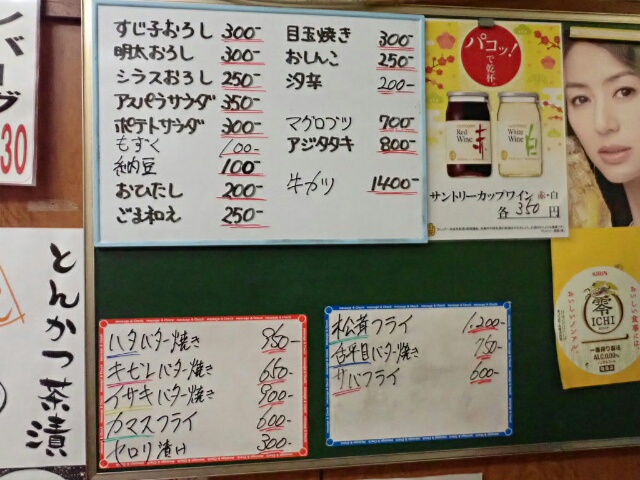 30
とんかつ茶漬
すじ子おろし 300-
明太おろし 300-
シラスおろし 250-
アスパラサラダ 350-
ポテトサラダ 300-
もずく 100-
納豆 100-
おひたし 200-
ごま和え 250-
目玉焼き 300-
おしんこ 250-
汐辛 200-
マグロブツ 700-
アジタタキ 800-
牛カツ 1400-
パコッ!
で乾杯。
Red Wine 赤
White Wine 白
サントリーカップワイン 赤・白
各350円
ハタバター焼き 950-
キビレバター焼き 650-
イサキバター焼き 900-
カマスフライ 600-
セロリ漬け 300-
松茸フライ 1,200-
舌平目バター焼き 750-
サバフライ 600-
KIRIN
零
ICHI
一番搾り製法
ALC.0.00%